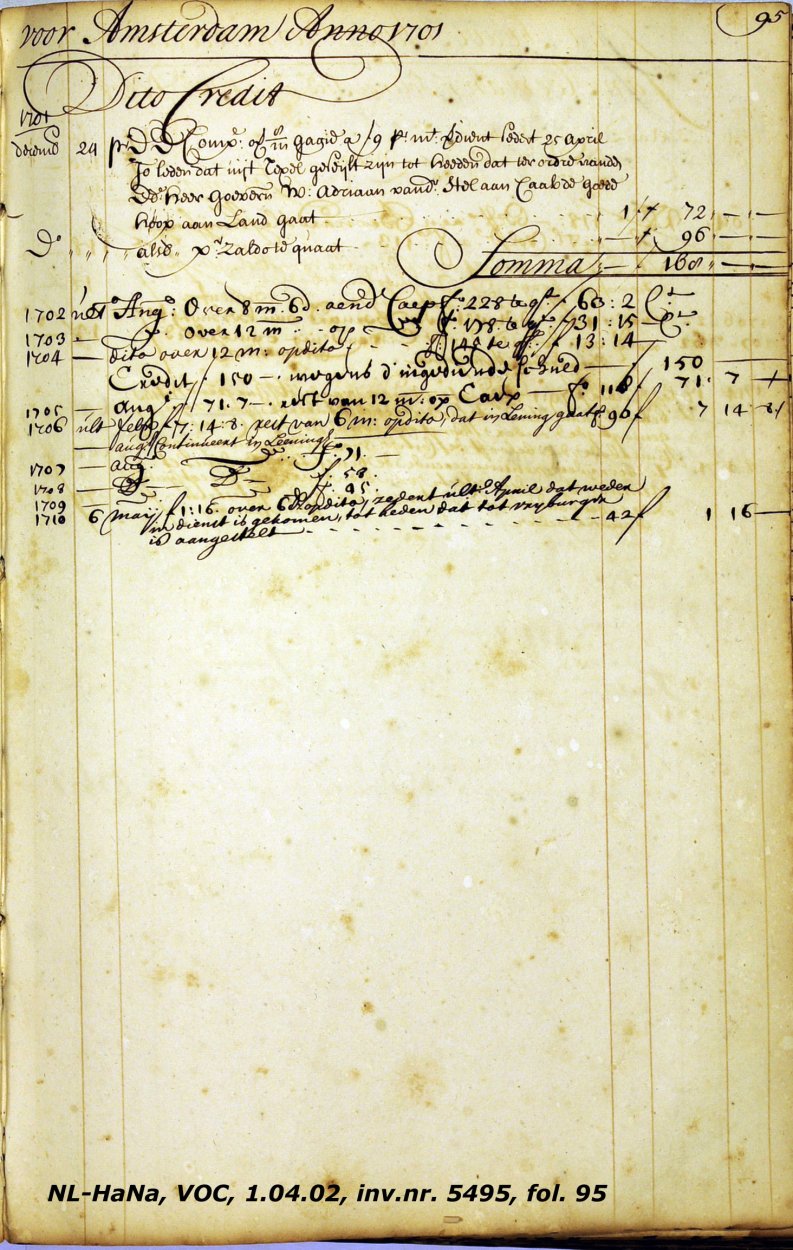 95
voor Amsterdam Anno 1701
Dito Credit
1701
decemb 24 pr D E Comp: op m gagie a f 9 pr mt verdient sedert 25 april
Jo leden dat uijt Texel geseijlt zijn tot heeden dat ter ordre vanden
Ed. heer Goevern W: Adriaan vandr Stel aan Caab de goede
hoop aan Land gaat 1 f 72 — —
Do " " " " aldr pr zaldo te quaat — f 96 — —
Somma — 168 — —
1702 ult Aug: Over 8 m. 6 d. aend Caep fo 228 te gt f 60: 2
1703 — over 12 m op fo 178 te gt f 31: 15
1704 — dito over 12 m: op dito f 148 te gt f 13: 14
Credit f 150 — wegens d'ingediende schuld — 150
1705 — aug f 71. 7 — rest van 12 m: op Caep — fo 118 f 71. 7
1706 ult feb f 7: 14: 8. rest van 6 m: op dito, dat in Lening gaat fo 90 f 7 14 8
— aug Continueert in Leening fo 71 —
1707 — aug Do fo 58
1708 — Do — Do — fo 45
1709
1710 6 maij f 1: 16. over 6 d op dito, zedert ult April dat weder
in dienst is gekomen, tot heden dat tot vrijburger
is aangestelt — 42 f 1 16 —
NL-HaNa, VOC, 1.04.02, inv.nr. 5495, fol. 95